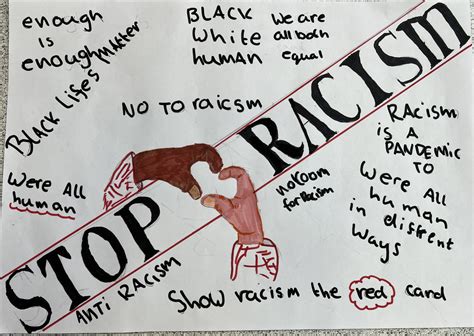 enough
is
enough
BLACK Lifes Matter
BLACK
White
human
We are
all both
equal
NO TO raicsm
STOP RACISM
RACISM
is A
PANDEMIC
TO
Were All
human
noroom
for Racism
Were All
human
in different
Ways
ANTi RACISM
Show racism the red card